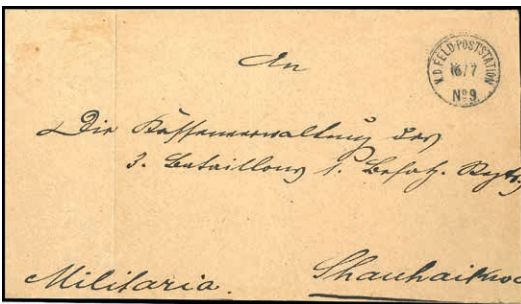 An
K.D. FELD-POSTSTATION
16/7
No 9.
Die Kassenverwaltung des
3. Bataillons 1. Besatz. Regts
Militaria.